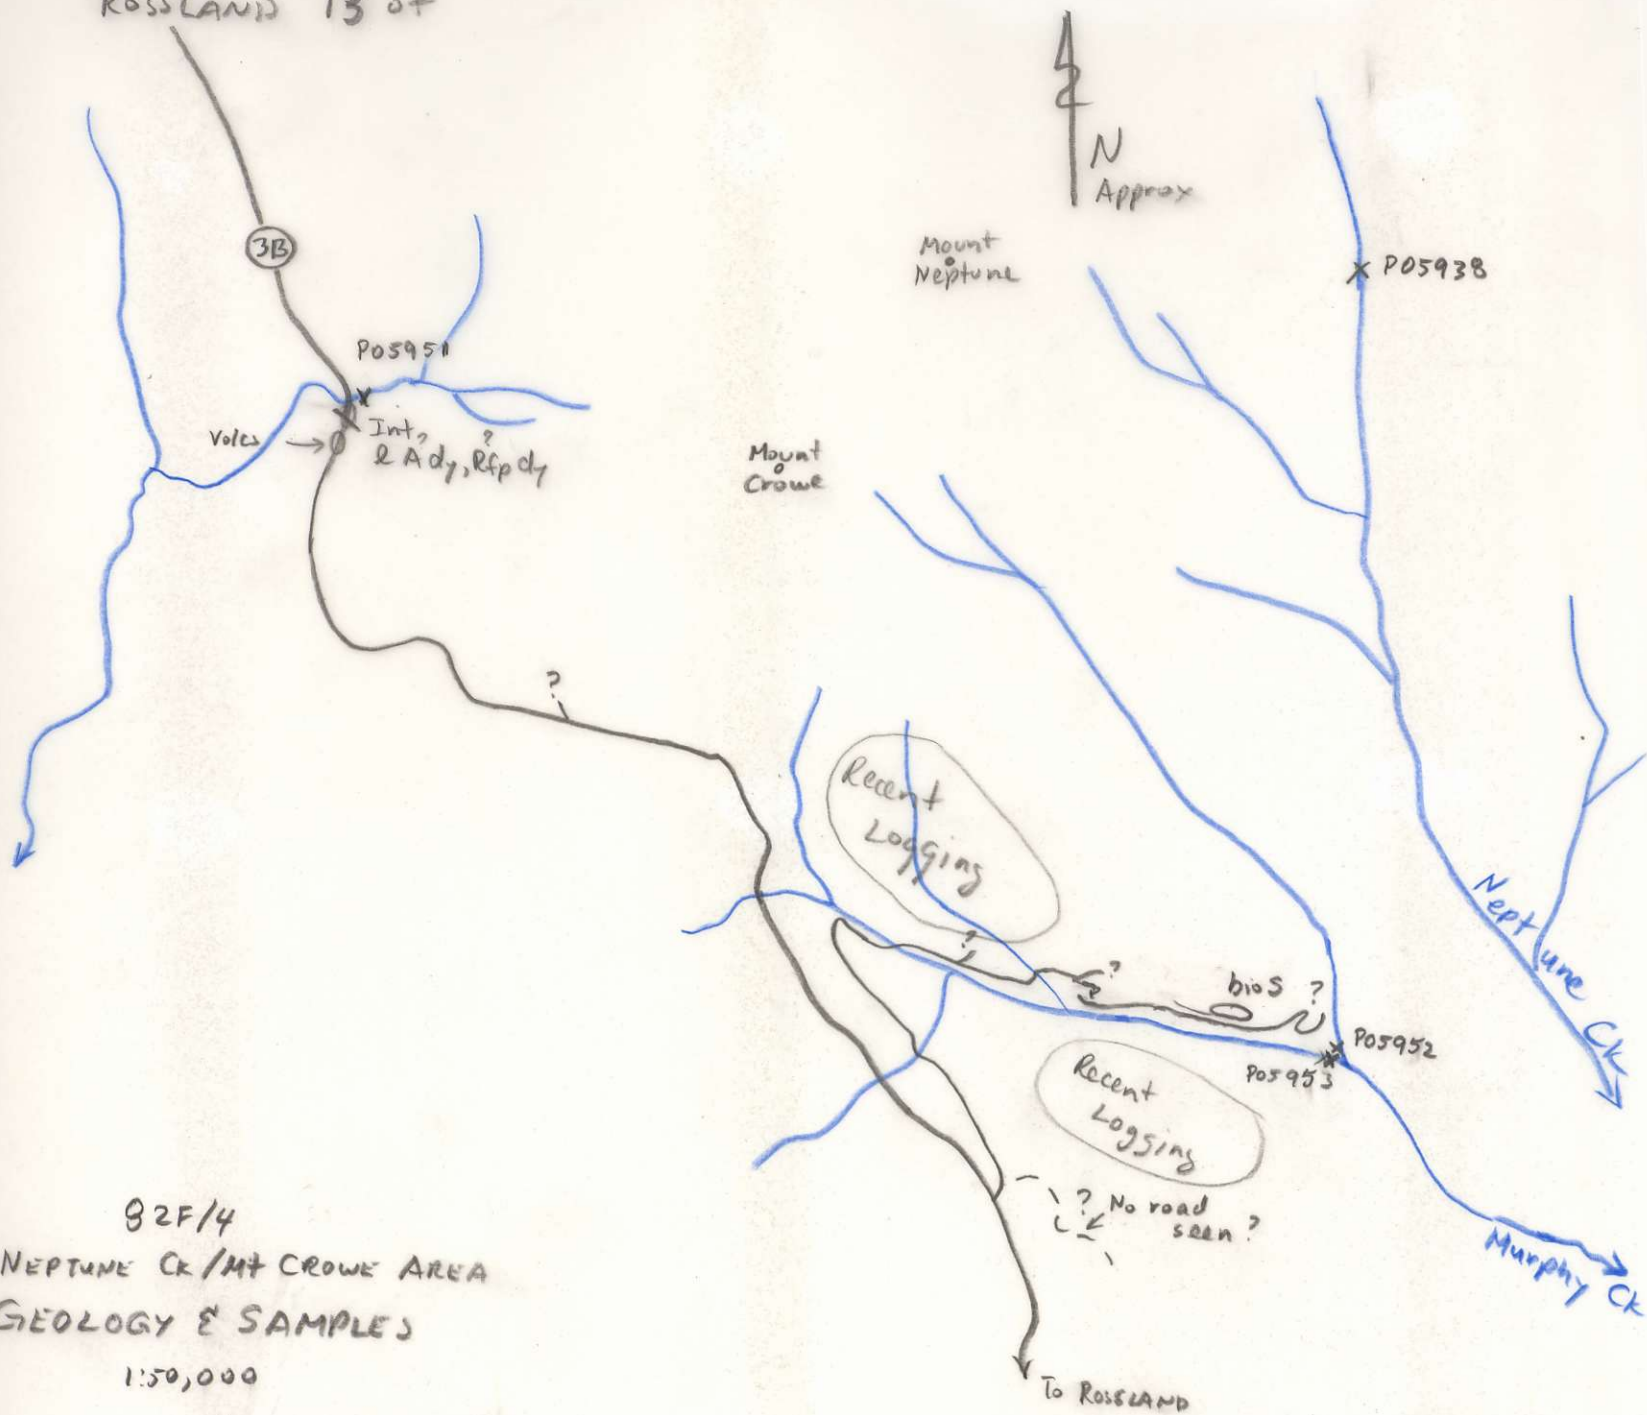 ROSSLAND 13 of
N
Approx
3B
Mount
Neptune
P05938
P05951
Volcs
Int, ?
& Ady, Rfp dy
?
Mount
Crowe
?
Recent
Logging
Neptune Ck
?
?
bioS ?
P05952
P05953
Recent
Logging
? No road
seen?
Murphy Ck
82F/4
NEPTUNE CK/Mt CROWE AREA
GEOLOGY & SAMPLES
1:50,000
To ROSSLAND